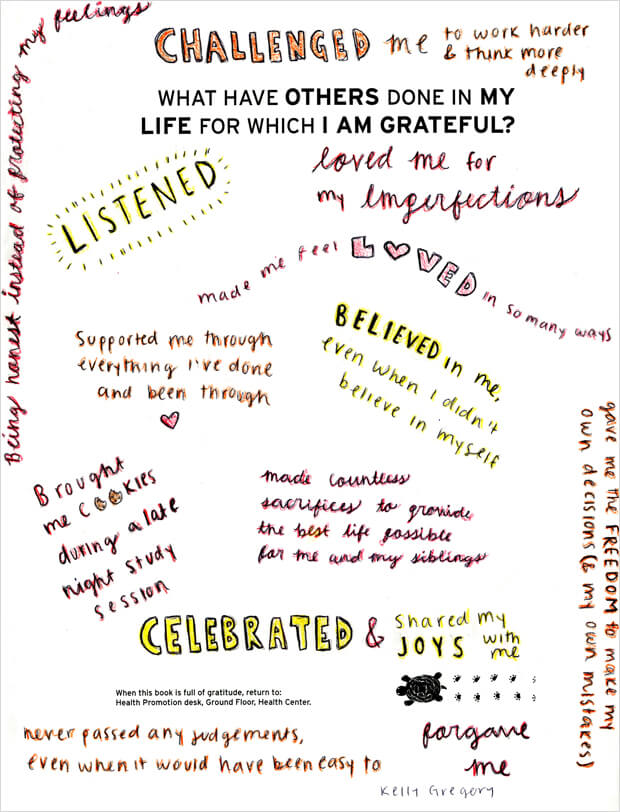 Being honest instead of protecting my feelings
CHALLENGED me to work harder
& think more
deeply
WHAT HAVE OTHERS DONE IN MY
LIFE FOR WHICH I AM GRATEFUL?
LISTENED
loved me for
my Imperfections
made me feel LOVED in so many ways
Supported me through
everything I've done
and been through
BELIEVED in me,
even when I didn't
believe in myself
Brought
me COOKIES
during a late
night study
session
made countless
sacrifices to provide
the best life possible
for me and my siblings
gave me the FREEDOM to make my
own decisions (& my own mistakes)
CELEBRATED & shared my
JOYS with
me
When this book is full of gratitude, return to:
Health Promotion desk, Ground Floor, Health Center.
never passed any judgements,
even when it would have been easy to
forgave
me
Kelly Gregory